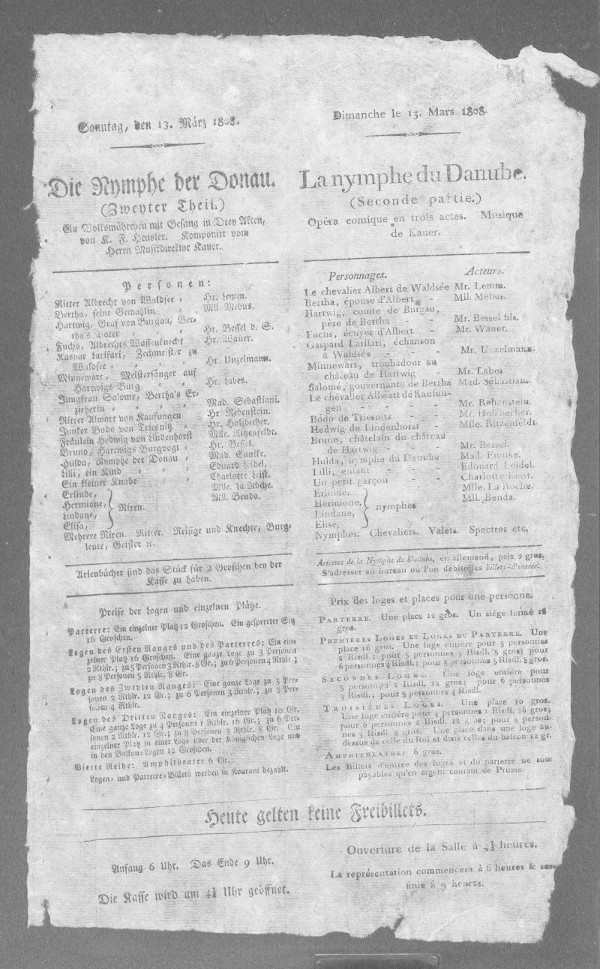 Sonntag, den 13. März 1808.
Die Nymphe der Donau.
(Zweyter Theil.)
Ein Volksmährchen mit Gesang in Drey Akten,
von K. F. Hensler. Komponirt vom
Herrn Musikdirektor Kauer.
Personen:
Ritter Albrecht von Waldsee Hr. Lemm.
Bertha, seine Gemahlin Mll. Mebus.
Hartwig, Graf von Burgau, Ber-
tha's Vater Hr. Bessel d. S.
Fuchs, Albrechts Waffenknecht Hr. Wauer.
Kaspar Larifari, Zechmeister zu
Waldsee Hr. Unzelmann.
Minnewart, Meistersänger auf
Hartwigs Burg Hr. Labes.
Jungfrau Salome, Bertha's Er-
zieherin Mad. Sebastiani.
Ritter Alwart von Kaufungen Hr. Rebenstein.
Junker Bodo von Triesnitz Hr. Holzbecher.
Fräulein Hedwig von Lindenhorst Mlle. Ritzenfeldt.
Bruno, Hartwigs Burgvogt Hr. Bessel.
Hulda, Nymphe der Donau Mad. Eunike.
Lilli, ein Kind Eduard Leidel.
Ein kleiner Knabe Charlotte Leist.
Erlinde, Mlle. la Roche.
Hermione, Mll. Benda.
Lindane, Nixen.
Elisa,
Mehrere Nixen. Ritter. Reisige und Knechte, Burg-
leute, Geister ꝛc.
Arienbücher sind das Stück für 2 Groschen bey der
Kasse zu haben.
Preise der Logen und einzelnen Plätze.
Parterre: Ein einzelner Platz 12 Groschen. Ein gesperrter Sitz
16 Groschen.
Logen des Ersten Ranges und des Parterres: Ein ein-
zelner Platz 16 Groschen. Eine ganze Loge zu 3 Personen
2 Rthlr.; zu 5 Personen 3 Rthlr. 8 Gr.; zu 6 Personen 4 Rthlr.;
zu 8 Personen 5 Rthlr. 8 Gr.
Logen des Zweyten Ranges: Eine ganze Loge zu 5 Per-
sonen 2 Rthlr. 12 Gr.; zu 6 Personen 3 Rthlr.; zu 8 Per-
sonen 4 Rthlr.
Logen des Dritten Ranges: Ein einzelner Platz 10 Gr.
Eine ganze Loge zu 4 Personen 1 Rthlr. 16 Gr.; zu 6 Per-
sonen 2 Rthlr. 12 Gr.; zu 8 Personen 3 Rthlr. 8 Gr. Ein
einzelner Platz in einer Loge über der Königlichen Loge und
in den Balkon-Logen 12 Groschen.
Vierte Reihe: Amphitheater 6 Gr.
Logen- und Parterre-Billets werden in Kourant bezahlt.
Dimanche le 13. Mars 1808.
La nymphe du Danube.
(Seconde partie.)
Opéra comique en trois actes. Musique
de Kauer.
Personnages. Acteurs.
Le chevalier Albert de Waldsée Mr. Lemm.
Bertha, épouse d'Albert Mll. Mebus.
Hartwig, comte de Burgau,
père de Bertha Mr. Bessel fils.
Fuchs, écuyer d'Albert Mr. Wauer.
Gaspard Larifari, échanson
à Waldsée Mr. Unzelmann.
Minnewart, troubadour au
château de Hartwig Mr. Labes.
Salomé, gouvernante de Bertha Mad. Sébastiani.
Le chevalier Allwart de Kaufun-
gen Mr. Rebenstein.
Bodo de Triesnitz Mr. Holzbecher.
Hedwig de Lindenhorst Mlle. Ritzenfeldt.
Bruno, châtelain du château
de Hartwig Mr. Bessel.
Hulda, nymphe du Danube Mad. Eunike.
Lilli, enfant Edouard Leidel.
Un petit garçon Charlotte Leist.
Erlinde, Mlle. La Roche.
Hermione, nymphes Mll. Benda.
Lindane,
Elise,
Nymphes. Chevaliers. Valets. Spectres etc.
Ariettes de la Nymphe du Danube, en allemand, prix 2 gros.
S'adresser au bureau ou l'on débite les billets d'entrée.
Prix des loges et places pour une personne.
Parterre. Une place 12 gros. Un siège fermé 16
gros.
Premières Loges et Loges du Parterre. Une
place 16 gros. Une loge entière pour 3 personnes
2 Risdl.; pour 5 personnes 3 Risdl. 8 gros; pour
6 personnes 4 Risdl.; pour 8 personnes 5 Risdl. 8 gros.
Secondes Loges. Une loge entière pour
5 personnes 2 Risdl. 12 gros; pour 6 personnes
3 Risdl.; pour 8 personnes 4 Risdl.
Troisièmes Loges. Une place 10 gros.
Une loge entière pour 4 personnes 1 Risdl. 16 gros;
pour 6 personnes 2 Risdl. 12 gros; pour 8 person-
nes 3 Risdl. 8 gros. Une place dans une loge au-
dessus de celle du Roi et dans celles du balcon 12 gr.
Amphithéatre: 6 gros.
Les Billets d'entrée des loges et du parterre ne sont
payables qu'en argent courant de Prusse.
Heute gelten keine Freibillets.
Anfang 6 Uhr. Das Ende 9 Uhr.
Die Kasse wird um 4½ Uhr geöffnet.
Ouverture de la Salle à 4½ heures.
La représentation commencera à 6 heures &
finie à 9 heures.